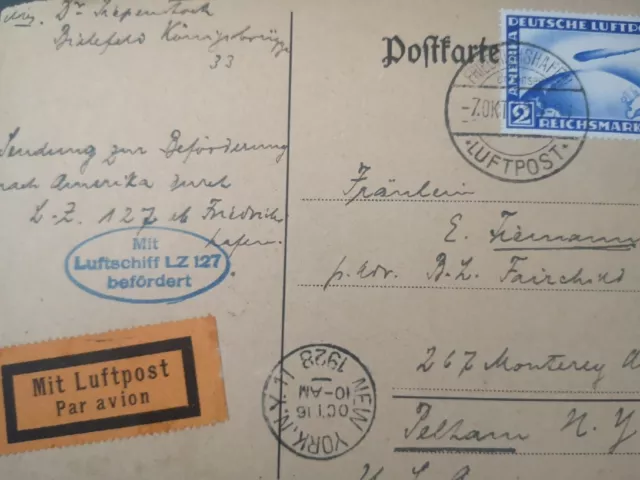 Dr. Siepenstock
Bielefeld Königsbrügge
33
Sendung zur Beförderung
nach Amerika durch
L.Z. 127 ab Friedrichs
hafen.
Mit
Luftschiff LZ 127
befördert
Mit Luftpost
Par avion
Postkarte
DEUTSCHE LUFTPO
AMERIKA
2
REICHSMARK
FRIEDRICHSHAFEN
-7.OKT
LUFTPOST
Fräulein
E.
p. Adr. B.L. Fairchild
267 Monterey A
Pelham N.Y
U.S.
NEW YORK, N.Y. 11
OCT 16
10-AM
1928